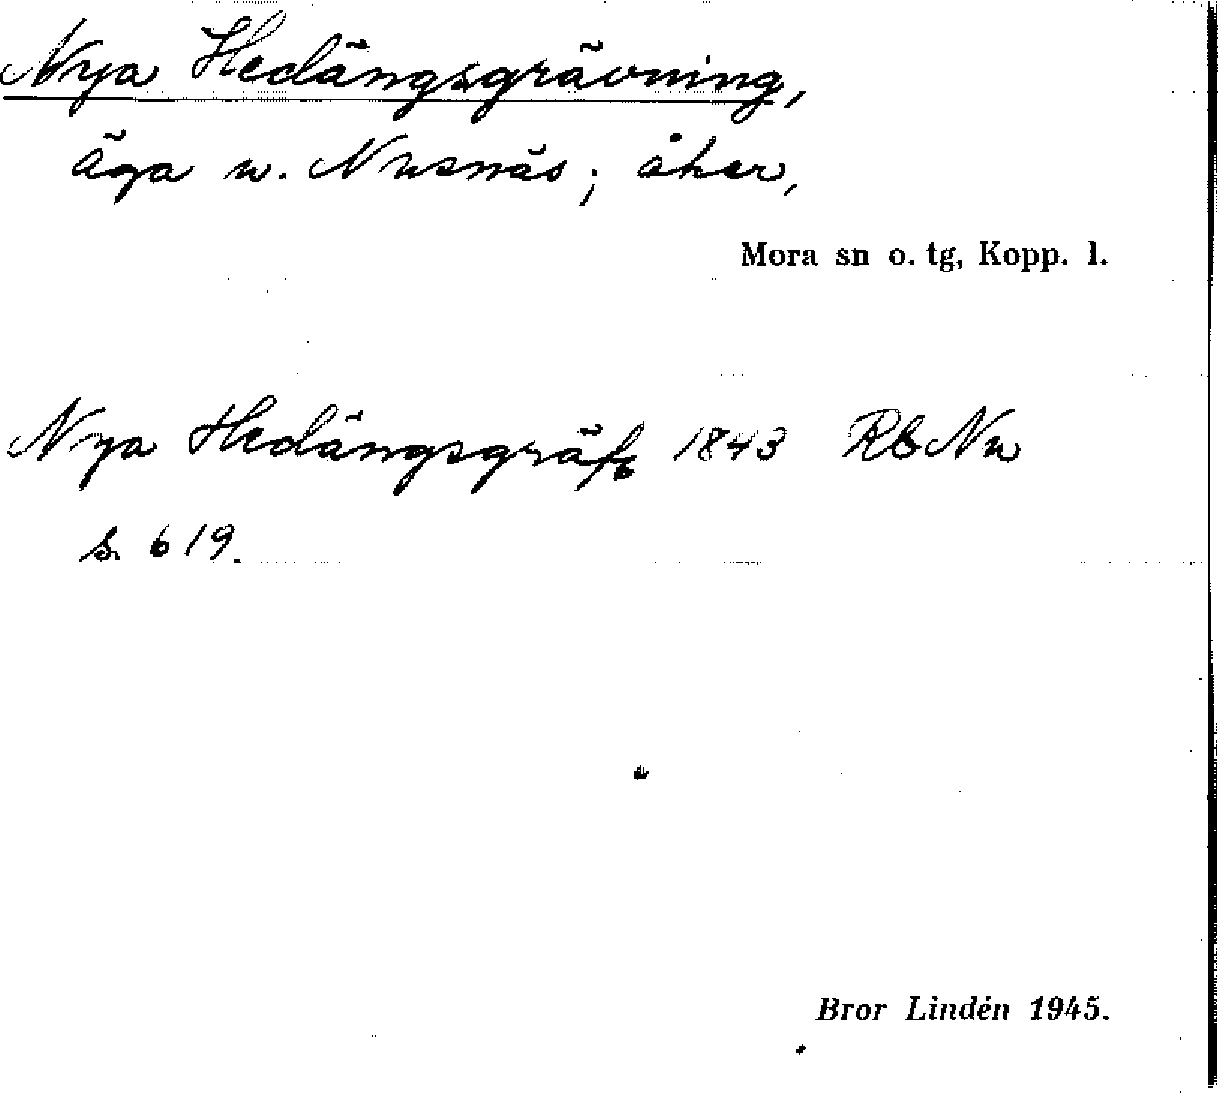 Nya Hedängsgrävning,
äga u. Nusnäs; åker,
Mora sn o. tg, Kopp. l.
Nya Hedängsgräfn 1843 RbNu
s. 619.
Bror Lindén 1945.